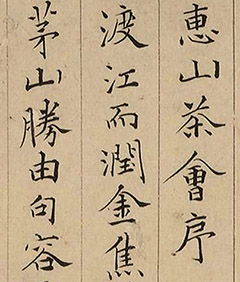 惠山茶會序
渡江而潤金焦
茅山勝由句容